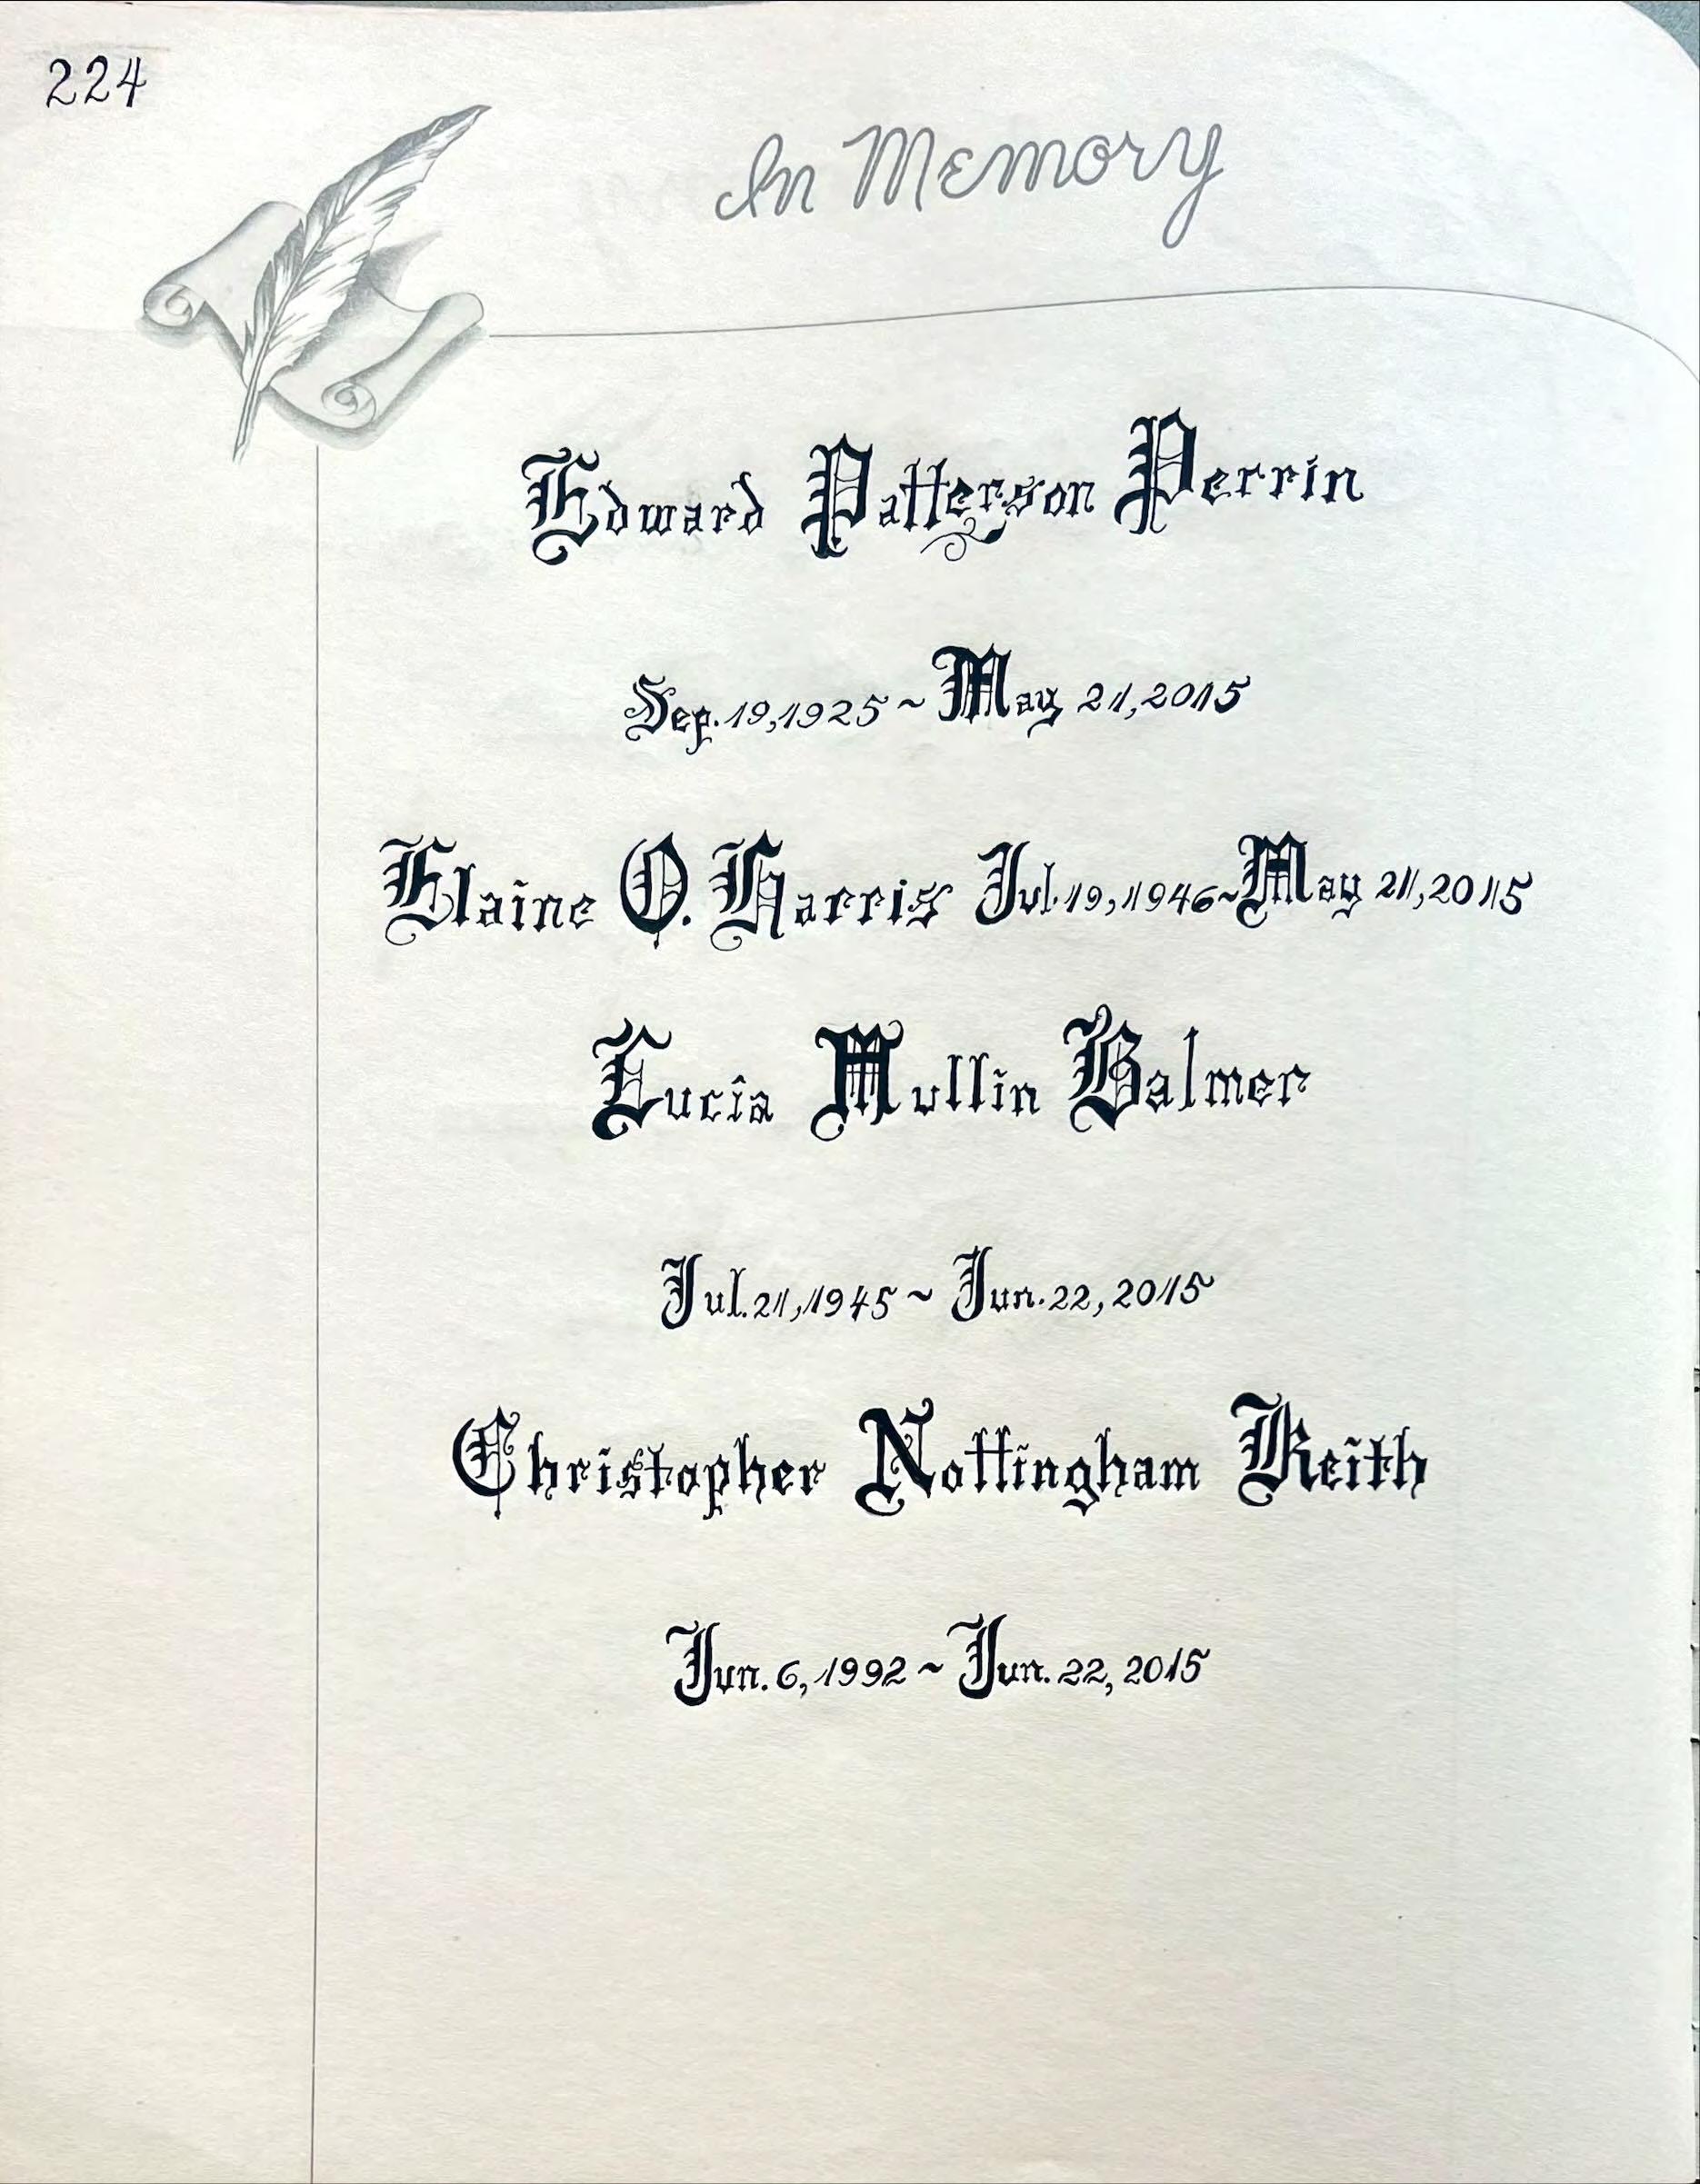 224
In Memory
Edward Patterson Perrin
Sep. 19, 1925 ~ May 21, 2015
Elaine O. Harris Jul. 19, 1946 ~ May 21, 2015
Lucia Mullin Balmer
Jul. 21, 1945 ~ Jun. 22, 2015
Christopher Nottingham Keith
Jun. 6, 1992 ~ Jun. 22, 2015